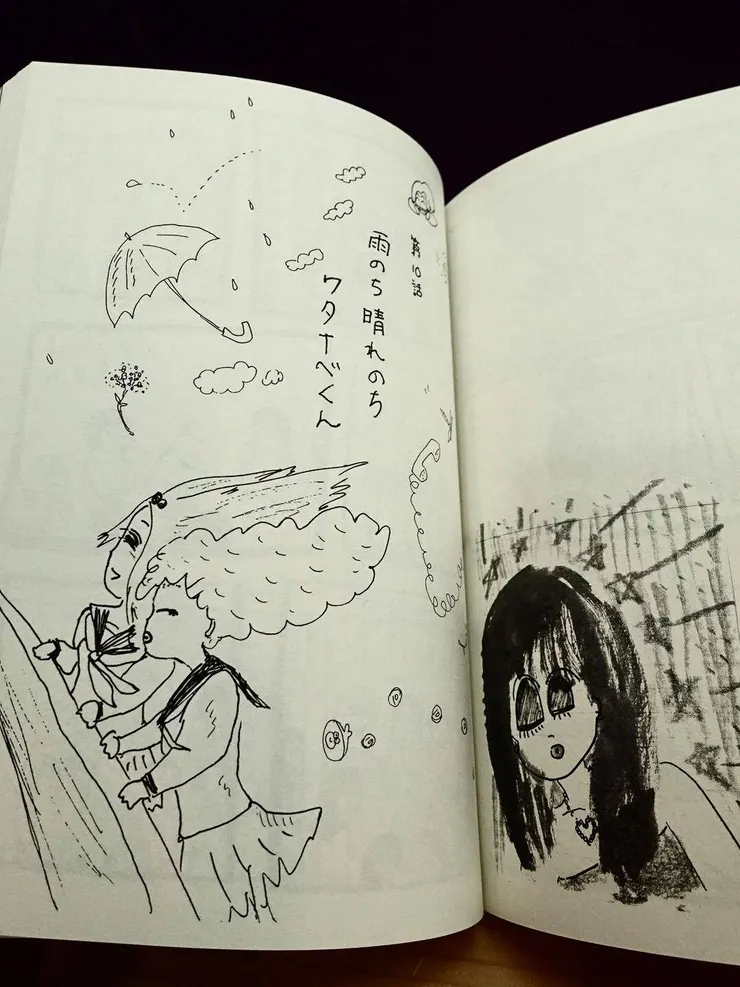 第10話
雨のち晴れのち
ワタナベくん
10